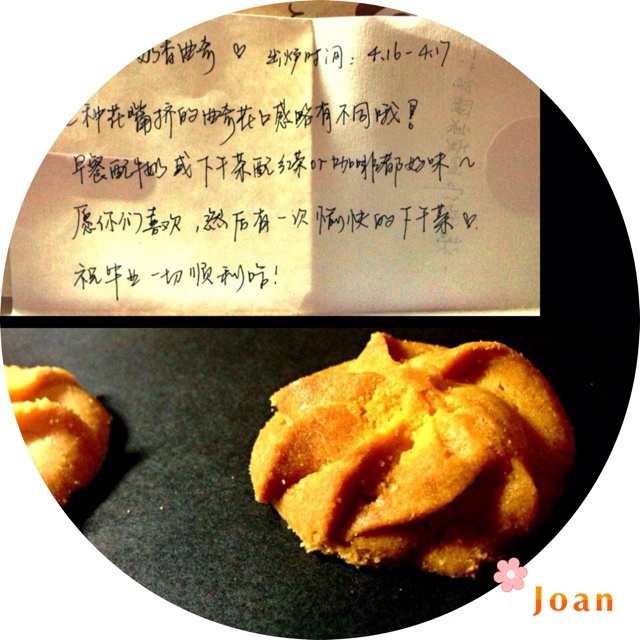 奶香曲奇 ♡ 出炉时间：4.16-4.17
种花嘴挤的曲奇花口感略有不同哦！
早餐配牛奶或下午茶配红茶or咖啡都好味～
愿你们喜欢，然后有一次愉快的下午茶♡.
祝毕业一切顺利哈！
Joan